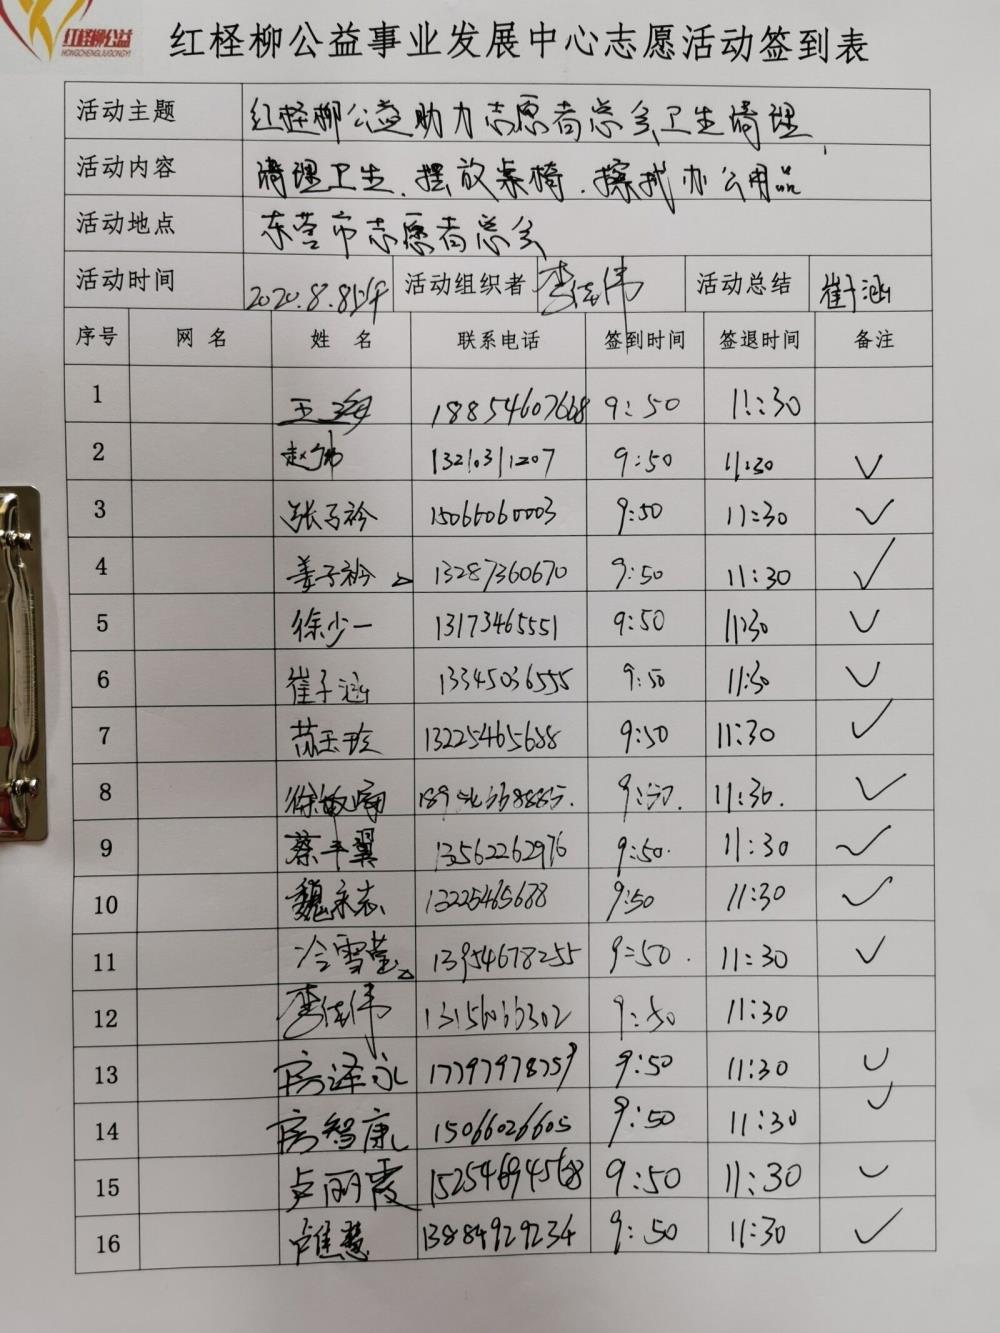 红柽柳公益
HONGCHENGLIUGONGYI
红柽柳公益事业发展中心志愿活动签到表
活动主题 红柽柳公益助力志愿者总会卫生清理
活动内容 清理卫生、摆放桌椅、擦拭办公用品
活动地点 东营市志愿者总会
活动时间 2020.8.8上午 活动组织者 李佳伟 活动总结 崔子涵
序号 网名 姓名 联系电话 签到时间 签退时间 备注
1 王海 18854607668 9:50 11:30
2 赵伟 13210311207 9:50 11:30 ✓
3 张子衿 15066060003 9:50 11:30 ✓
4 姜子衿 13287360670 9:50 11:30 ✓
5 徐少一 13173465551 9:50 11:30 ✓
6 崔子涵 13345036555 9:50 11:30 ✓
7 苗玉珍 13225465688 9:50 11:30 ✓
8 9:50. 11:30. ✓
9 蔡平翼 13562262976 9:50. 11:30 ✓
10 魏永志 13225465688 9:50 11:30 ✓
11 冷雪莹 13954678255 9:50. 11:30 ✓
12 李佳伟 9:50 11:30
13 房泽永 17797978759 9:50 11:30 ✓
14 房智康 15066026605 9:50 11:30 ✓
15 卢丽霞 15254694568 9:50 11:30 ✓
16 卢佳慧 13884929234 9:50 11:30 ✓